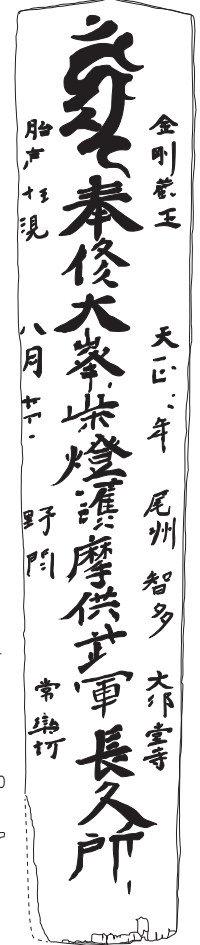 金剛蔵王 天正二年 尾州智多 大御堂寺
奉修大峯柴燈護摩供武軍長久所
胎 現 八月廿 野間 常樂坊